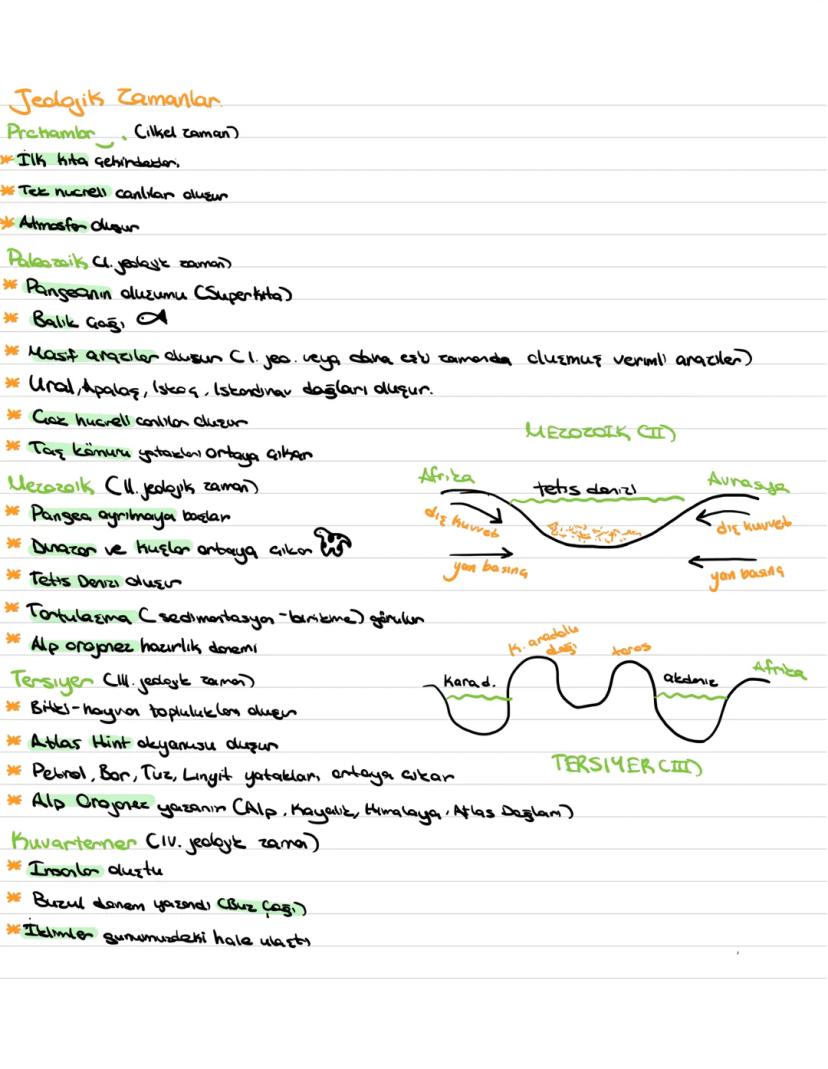 Jeolojik Zamanlar
Prekambr. (ilkel zaman)
* İlk kıta çekirdekleri
* Tek hücreli canlılar oluşur
* Atmosfer oluşur
Paleozoik (I. jeolojik zaman)
* Pangeanın oluşumu (Süperkıta)
* Balık Çağı
* Masif araziler oluşur (I. jeo. veya daha eski zamanda oluşmuş verimli araziler)
* Ural, Apalaş, İskoç, İskandinav dağları oluşur.
* Çok hücreli canlılar oluşur
* Taş kömürü yatakları ortaya çıkar
Mezozoik (II. jeolojik zaman)
* Pangea ayrılmaya başlar
* Dinazor ve kuşlar ortaya çıkar
* Tetis Denizi oluşur
* Tortulaşma (sedimantasyon-birikme) görülür
* Alp orojenez hazırlık dönemi
MEZOZOIK (II)
Afrika
tetis denizi
Avrasya
dış kuvvet
dış kuvvet
yan basınç
yan basınç
Tersiyer (III. jeolojik zaman)
* Bitki-hayvan toplulukları oluşur
* Atlas Hint okyanusu oluşur
* Petrol, Bor, Tuz, Linyit yatakları ortaya çıkar
* Alp Orojenez yaşanır (Alp, Kayalık, Himalaya, Atlas Dağları)
K. anadolu
dağı
toros
Karad.
akdeniz
Afrika
TERSIYER (III)
Kuvarterner (IV. jeolojik zaman)
* İnsanlar oluştu
* Buzul dönem yaşandı (Buz Çağı)
* İklimler günümüzdeki hale ulaştı